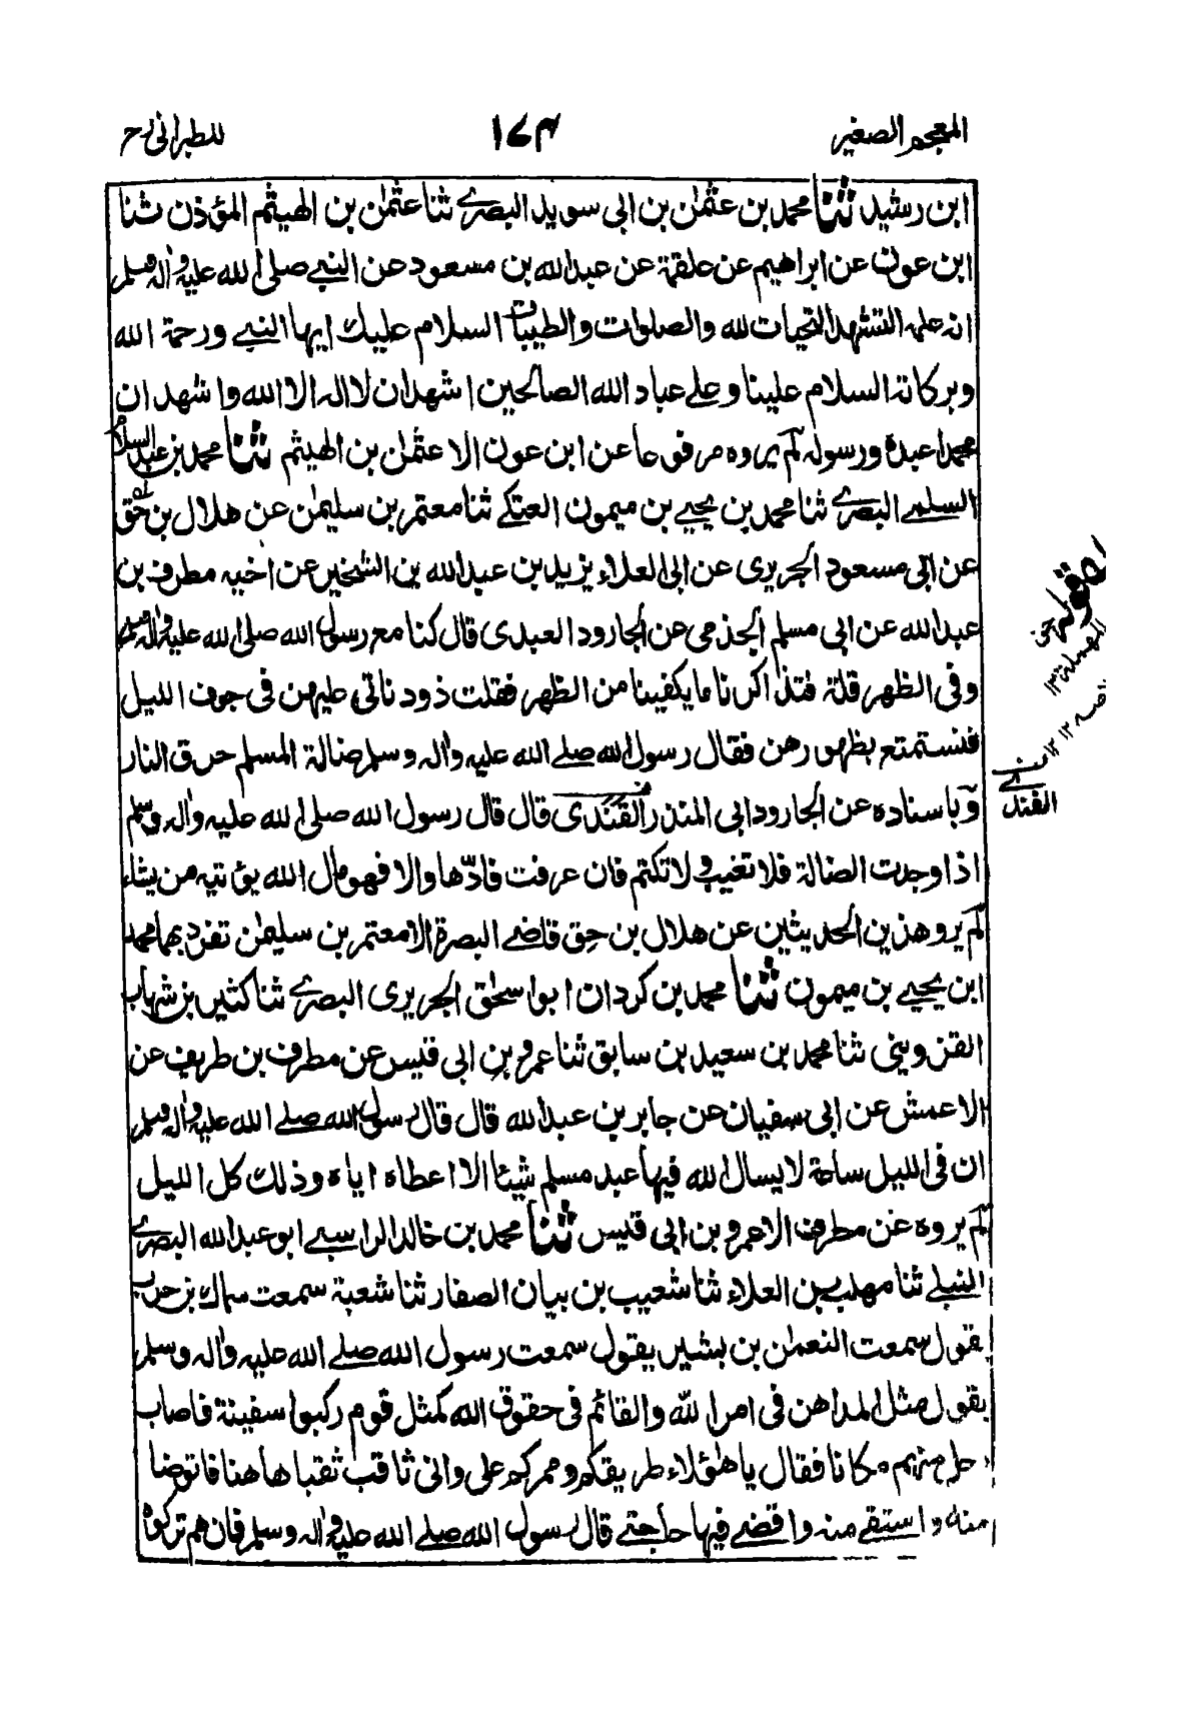 المعجم الصغير
١٧٣
للطبرانی رح
ابن رشيد ثنا محمد بن عثمٰن بن ابی سويد البصرے ثنا عثمٰن بن الهيثم المؤذن ثنا
ابن عون عن ابراهيم عن علقمة عن عبدالله بن مسعود عن النبے صلی الله عليه واٰله وسلم
انه علمه التشهد التحيات لله والصلوات والطيبات السلام عليك ايها النبے ورحمة الله
وبركاته السلام علينا وعلے عباد الله الصالحين اشهد ان لا اله الا الله واشهد ان
محمدا عبدہ ورسوله لم يروه مرفوعا عن ابن عون الا عثمٰن بن الهيثم ثنا محمد بن عبد السلام
السلمے البصرے ثنا محمد بن يحيے بن ميمون العتكے ثنا معتمر بن سليمٰن عن هلال بن حق
عن ابی مسعود الجريری عن ابی العلاء يزيد بن عبدالله بن الشخير عن اخيه مطرف بن
عبدالله عن ابی مسلم الجذمی عن الجارود العبدی قال كنا مع رسول الله صلی الله عليه واٰله وسلم
وفی الظهر قلة فتذاكرنا ما يكفينا من الظهر فقلت ذود ناتی عليهن فی جوف الليل
فنستمتع بظهورهن فقال رسول الله صلے الله عليه واٰله وسلم ضالة المسلم حرق النار
وباسناده عن الجارود ابی المنذر القندی قال قال رسول الله صلی الله عليه واٰله وسلم
اذا وجدت الضالة فلا تغيب ولا تكتم فان عرفت فادّها والا فهو مال الله يؤتيه من يشاء
لم يرو هذين الحديثين عن هلال بن حق قاضے البصرة الا معتمر بن سليمٰن تفرد بهما محمد
ابن يحيے بن ميمون ثنا محمد بن كردان ابو اسحٰق الجريری البصرے ثنا كثير بن شهاب
القزوينی ثنا محمد بن سعيد بن سابق ثنا عمرو بن ابی قيس عن مطرف بن طريف عن
الاعمش عن ابی سفيان عن جابر بن عبدالله قال قال رسول الله صلے الله عليه واٰله وسلم
ان فی الليل ساعة لا يسال الله فيها عبد مسلم شيئا الا اعطاه اياه وذلك كل الليل
لم يروه عن مطرف الا عمرو بن ابی قيس ثنا محمد بن خالد الراسبے ابو عبدالله البصرے
النيلے ثنا مهلب بن العلاء ثنا شعيب بن بيان الصفار ثنا شعبة سمعت سماك بن حرب
يقول سمعت النعمٰن بن بشير يقول سمعت رسول الله صلے الله عليه واٰله وسلم
يقول مثل المداهن فی امر الله والقائم فی حقوق الله كمثل قوم ركبوا سفينة فاصاب
رجل منهم مكانا فقال يا هٰؤلاء طريقكم وممركم علی وانی ثاقب ثقبا هاهنا فاتوضا
منه واستقے منه واقضے فيها حاجتے قال رسول الله صلے الله عليه واٰله وسلم فان هم تركوه
قوله حق
القندے